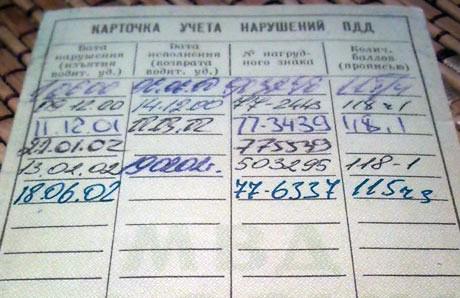 КАРТОЧКА УЧЕТА НАРУШЕНИЙ ПДД
Дата нарушения (изъятия водит. уд.) Дата исполнения (возврата водит. уд.) № нагрудного знака Колич. баллов (прописью)
12.00 14.12.00 77-2443 118 ч1
11.12.01 77-3439 118.1
22.01.02 775543
13.02.02 503295 118-1
18.06.02 77-6337 115ч3
МВД